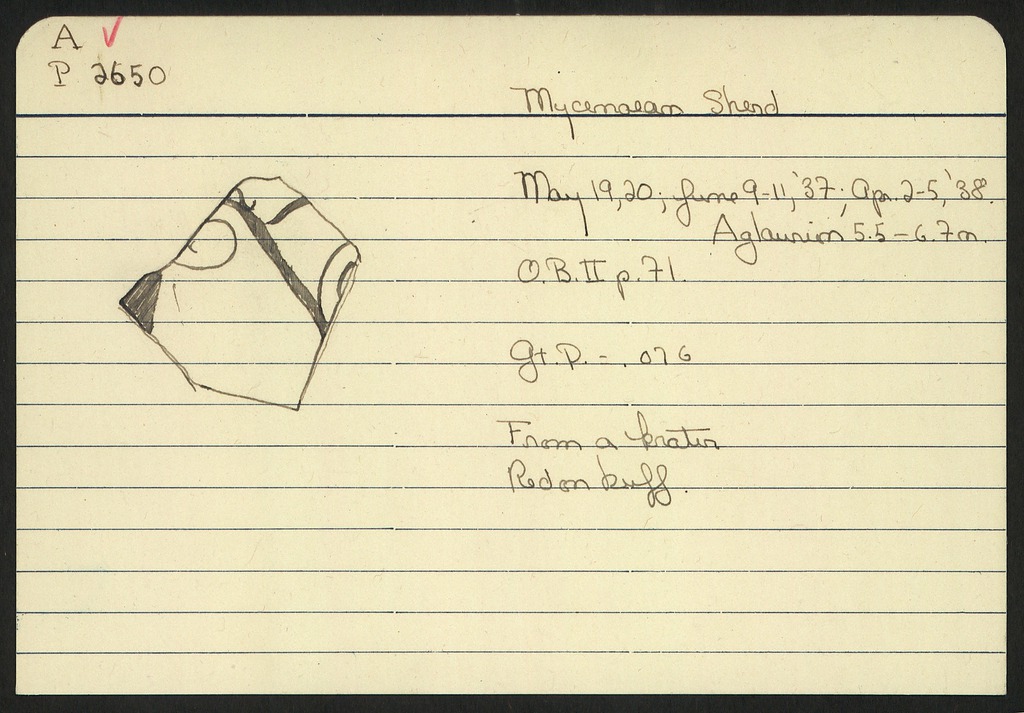 A ✓
P 2650
Mycenaean Sherd
May 19, 20; June 9-11, '37; Apr. 2-5, '38.
Aglaurion 5.5 – 6.7m.
O.B. II p. 71.
Gt. D. - .076
From a krater
Red on buff.